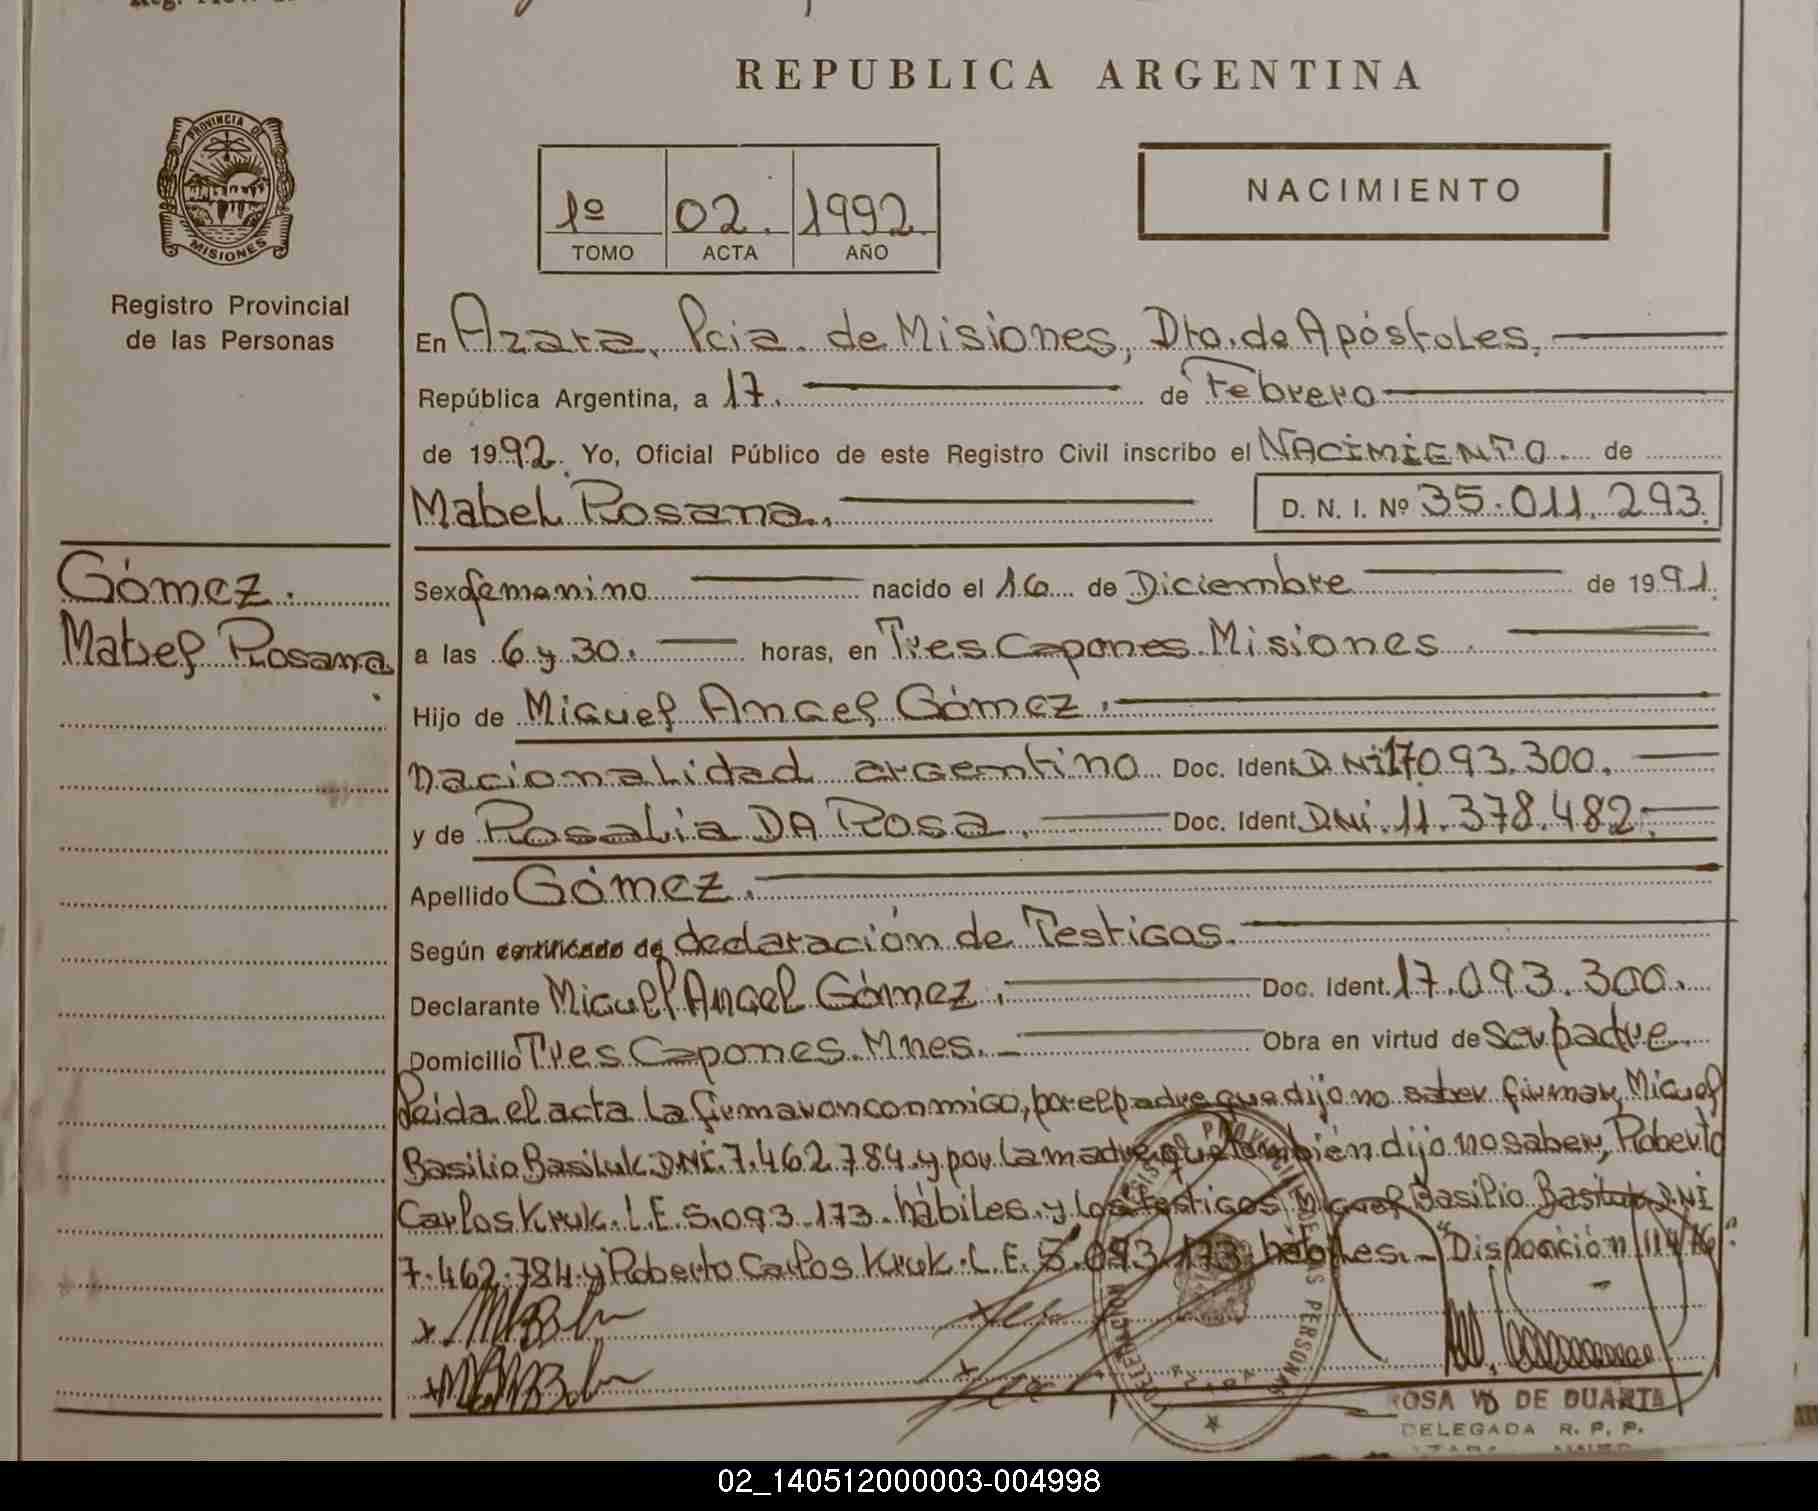 REPUBLICA ARGENTINA
PROVINCIA DE
MISIONES
Registro Provincial
de las Personas
1º 02. 1992.
TOMO ACTA AÑO
NACIMIENTO
En Azara, Pcia. de Misiones, Dto. de Apóstoles.
República Argentina, a 17. de Febrero
de 1992. Yo, Oficial Público de este Registro Civil inscribo el NACIMIENTO de
Mabel Rosana. D. N. I. Nº 35.011.293.
Gómez.
Mabel Rosana
Sexo femenino nacido el 16 de Diciembre de 1991.
a las 6 y 30. horas, en Tres Capones Misiones
Hijo de Miguel Angel Gómez.
nacionalidad argentino Doc. Ident. DNI 17.093.300.
y de Rosalia DA ROSA. Doc. Ident. DNI. 11.378.482.
Apellido Gómez.
Según certificado de declaración de Testigos.
Declarante Miguel Angel Gómez. Doc. Ident. 17.093.300.
Domicilio Tres Capones. Mnes. Obra en virtud de ser padre
Leida el acta la firmaron conmigo, por el padre que dijo no saber firmar, Miguel
Basilio Basiluk DNI. 7.462.784. y por la madre que también dijo no saber, Roberto
Carlos Kruk. L.E. 5.093.173. hábiles. y los testigos Miguel Basilio Basiluk DNI
7.462.784. y Roberto Carlos Kruk. L.E. 5.093.173. hábiles. - "Disposición 114/76".
ROSA VD DE DUARTE
DELEGADA R. P. P.
AZARA
02_140512000003-004998